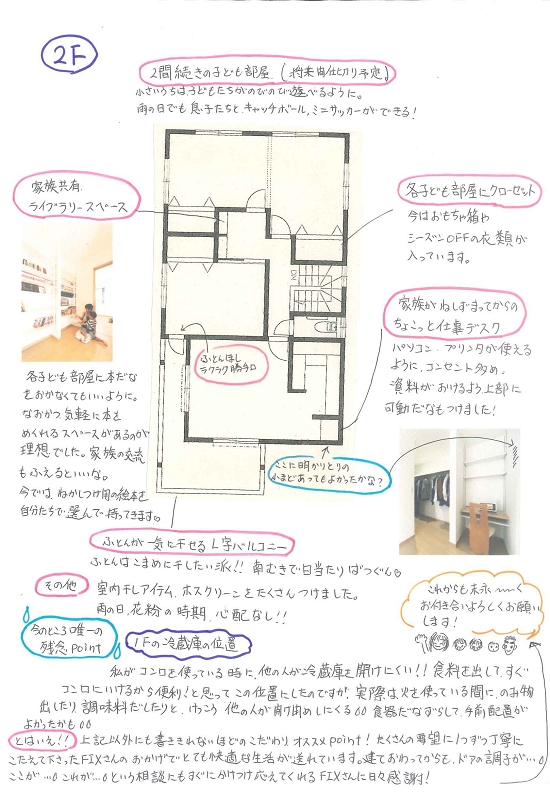 2F
2間続きの子ども部屋（将来間仕切り予定）
小さいうちは子どもたちがのびのび遊べるように。
雨の日でも息子たちとキャッチボール，ミニサッカーができる！
家族共有
ライブラリースペース
各子ども部屋にクローゼット
今はおもちゃ箱や
シーズンOFFの衣類が
入っています。
家族がねしずまってからの
ちょこっと仕事デスク
パソコン・プリンタが使える
ように、コンセント多め。
資料がおけるよう上部に
可動だなもつけました！
ふとんほし
ラクラク勝手口
各子ども部屋に本だな
をおかなくてもいいように。
なおかつ気軽に本を
めくれるスペースがあるのが
理想でした。家族の交流
もふえるといいな。
今では、ねかしつけ用の絵本を
自分たちで選んで持ってきます。
ここに明かりとりの
小まどあってもよかったかな？
ふとんが一気に干せるL字バルコニー
ふとんはこまめに干したい派!! 南むきで日当たりばつぐん
その他
室内干しアイテム、ホスクリーンをたくさんつけました。
雨の日、花粉の時期、心配なし!!
これからも末永〜く
お付き合いよろしくお願い
します！
今のところ唯一の
残念point
1Fの冷蔵庫の位置
私がコンロを使っている時に、他の人が冷蔵庫を開けにくい!! 食料を出して、すぐ
コンロにいけるから便利！と思ってこの位置にしたのですが、実際は火を使っている間に、のみ物
出したり、調味料だしたりと、けっこう他の人が開け閉めしにくる 食器だなずらして、手前配置が
よかったかも
とはいえ!!
上記以外にも書ききれないほどのこだわり、オススメpoint！たくさんの要望に1つずつ丁寧に
こたえて下さったFIXさんのおかげでとても快適な生活が送れています。建ておわってからも、ドアの調子が…
ここが…これが…という相談にもすぐにかけつけ応えてくれるFIXさんに日々感謝！